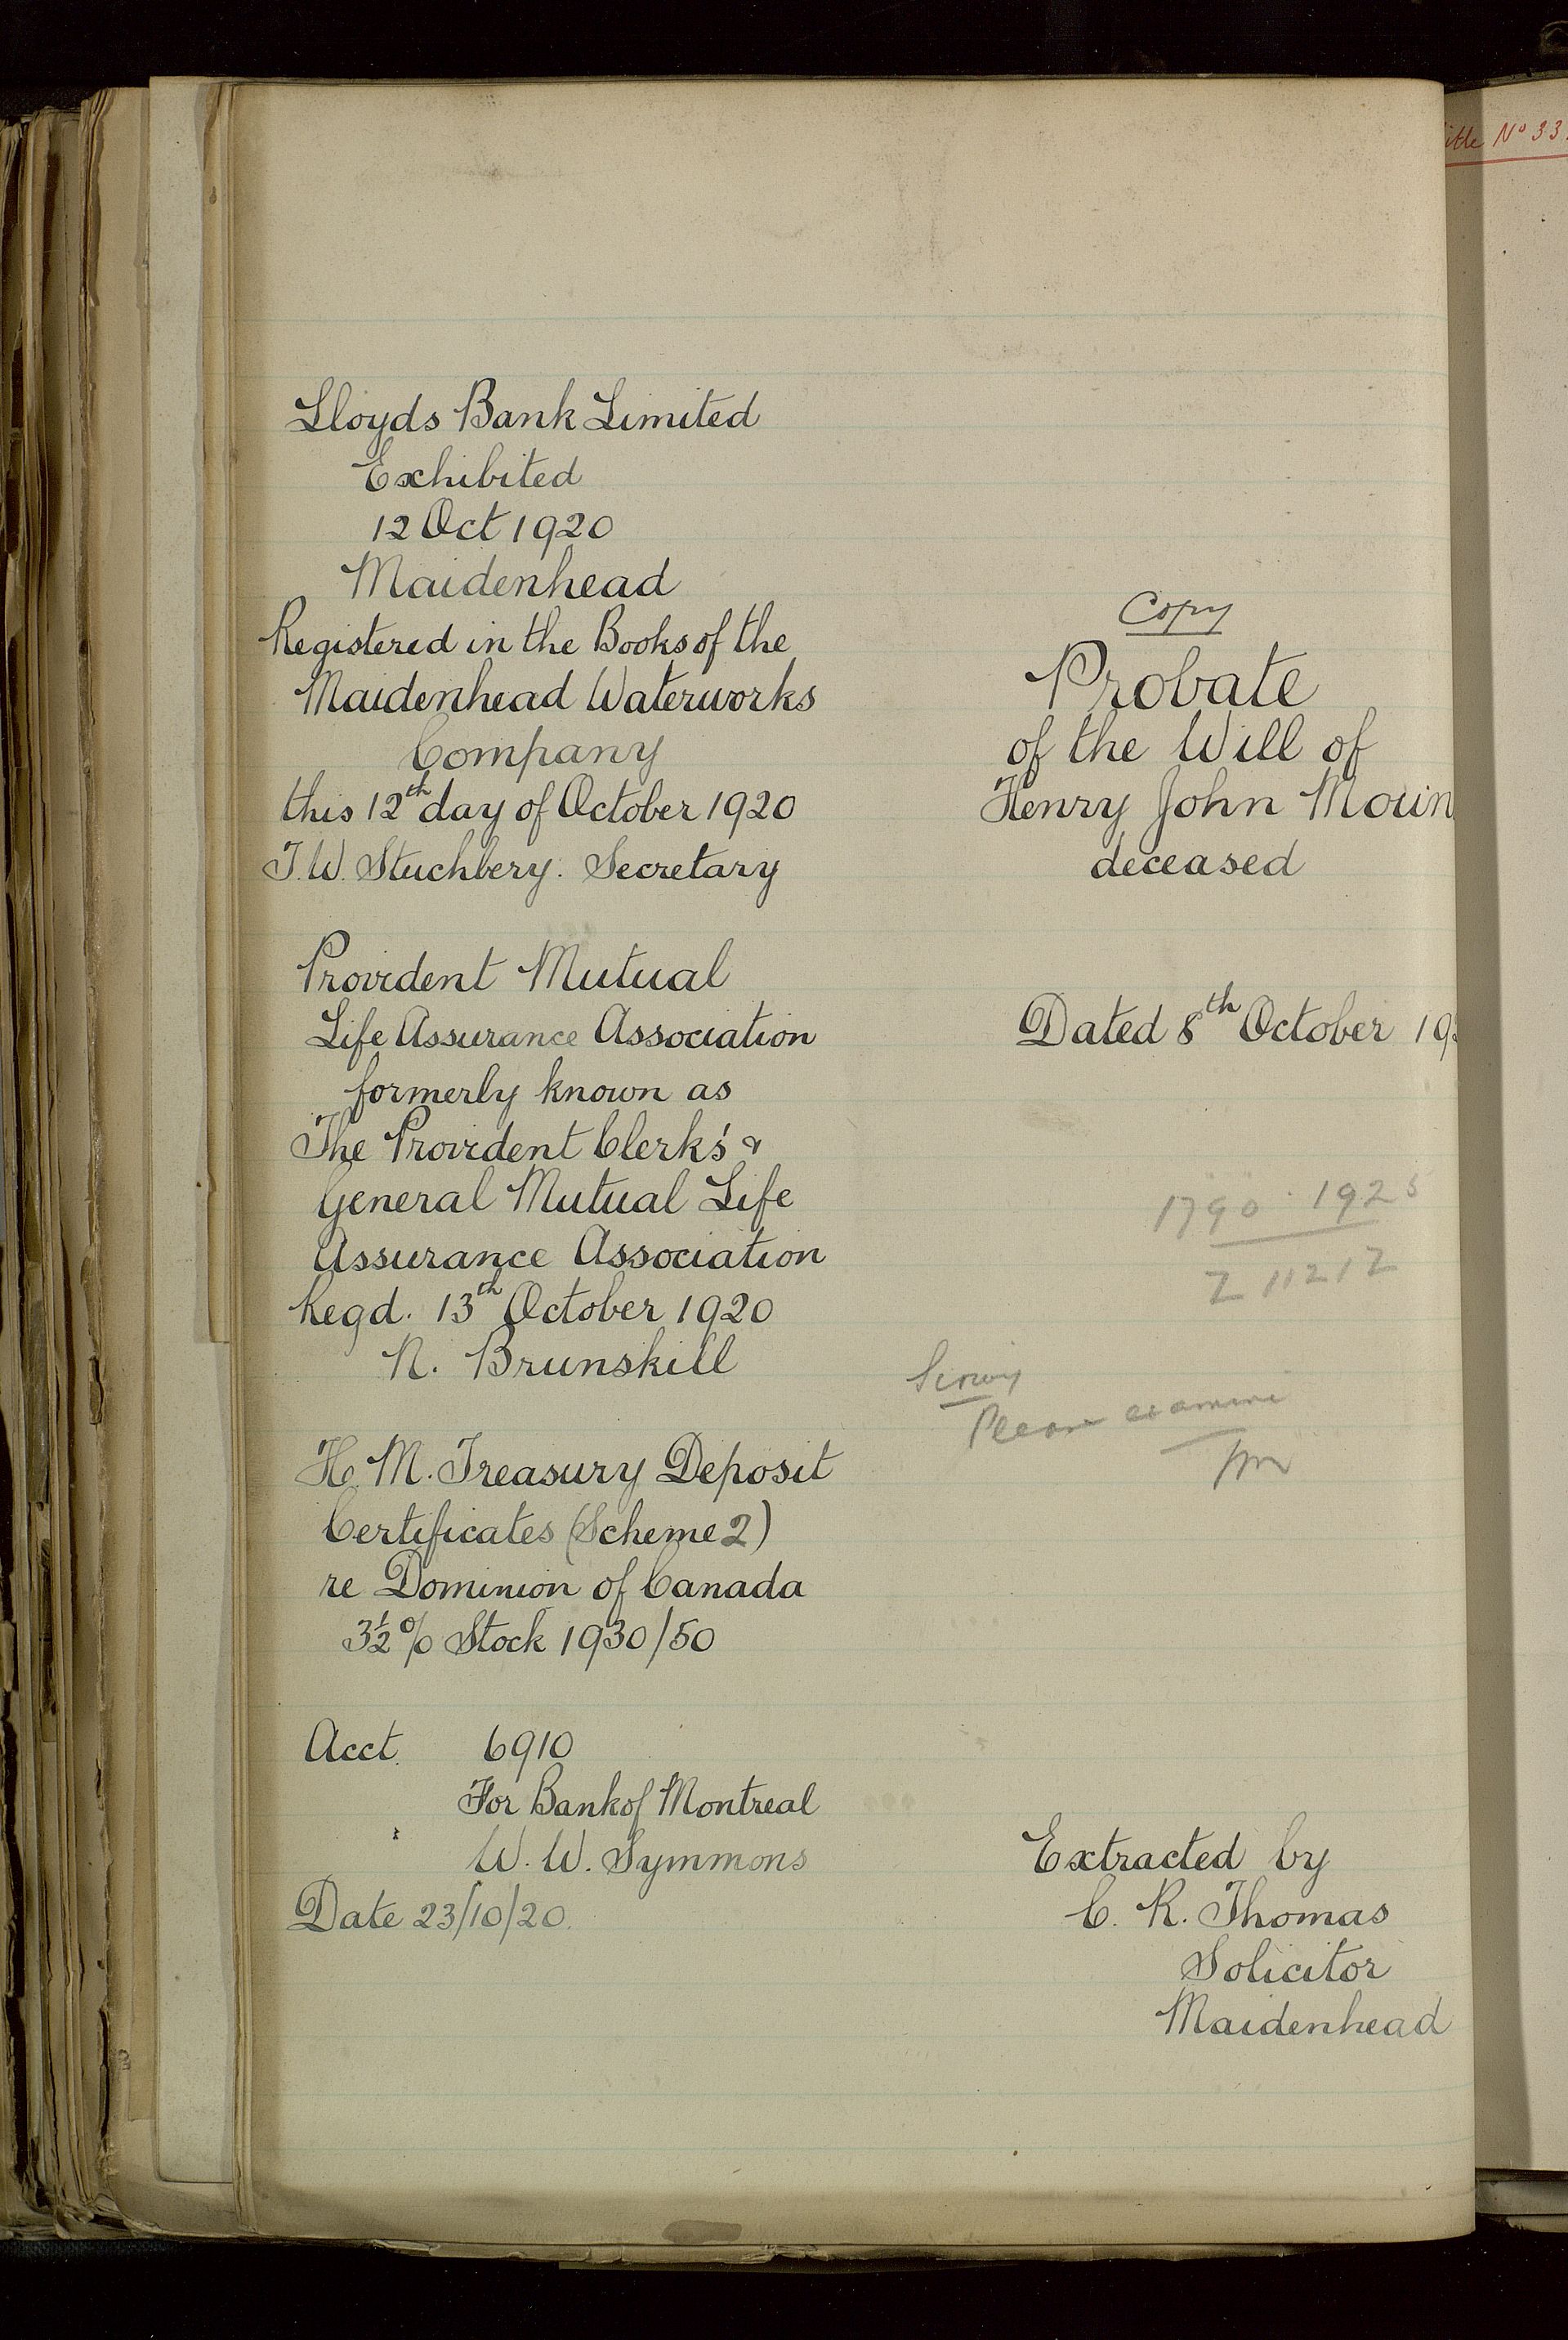 Lloyds Bank Limited
Exhibited
12 Oct 1920
Maidenhead
Registered in the Books of the
Maidenhead Waterworks
Company
this 12th day of October 1920
J. W. Stuchbery. Secretary
Provident Mutual
Life Assurance Association
formerly known as
The Provident Clerks' &
General Mutual Life
Assurance Association
Regd. 13th October 1920
N. Brunskill
H. M. Treasury Deposit
Certificates (Scheme 2)
re Dominion of Canada
3½% Stock 1930/50
Acct. 6910
For Bank of Montreal
W. W. Symmons
Date 23/10/20.
Copy
Probate
of the Will of
Henry John
deceased
Dated 8th October
1790 · 1925
Z 11212
Please examine
Extracted by
C. R. Thomas
Solicitor
Maidenhead
Nº 33